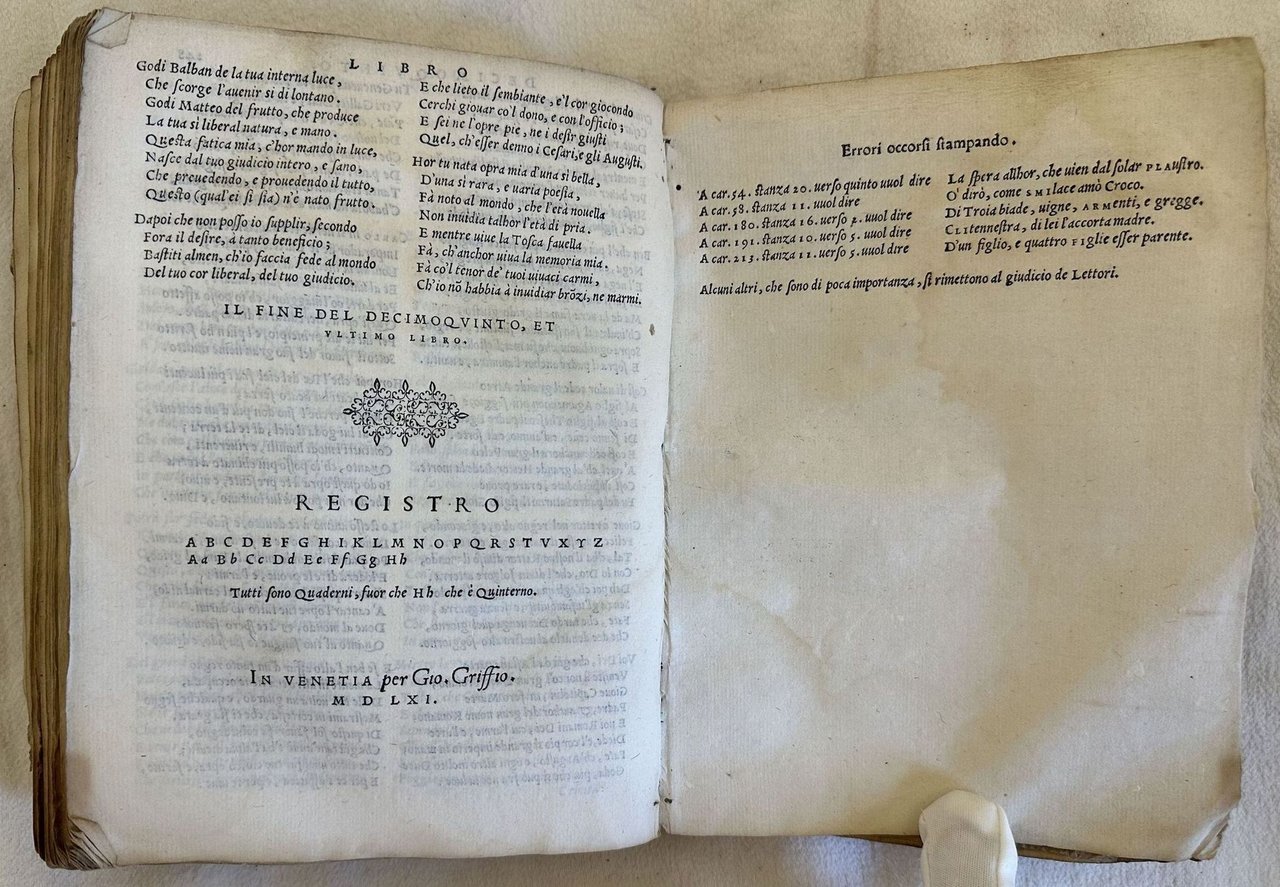 LIBRO
Godi Balban de la tua interna luce,
Che ſcorge l'auenir sì di lontano.
Godi Matteo del frutto, che produce
La tua sì liberal natura, e mano.
Queſta fatica mia, c'hor mando in luce,
Naſce dal tuo giudicio intero, e ſano,
Che preuedendo, e prouedendo il tutto,
Queſto (qual ei ſi ſia) n'è nato frutto.
Dapoi che non poſſo io ſupplir, ſecondo
Fora il deſire, à tanto beneficio;
Baſtiti almen, ch'io faccia fede al mondo
Del tuo cor liberal, del tuo giudicio.
E che lieto il ſembiante, e'l cor giocondo
Cerchi giouar co'l dono, e con l'officio;
E ſei ne l'opre pie, ne i deſir giuſti
Quel, ch'eſſer denno i Ceſari, e gli Auguſti.
Hor tu nata opra mia d'una sì bella,
D'una sì rara, e uaria poeſia,
Fà noto al mondo, che l'età nouella
Non inuidia talhor l'età di pria.
E mentre uiue la Toſca fauella
Fà, ch'anchor uiua la memoria mia.
Fà co'l tenor de' tuoi uiuaci carmi,
Ch'io nõ habbia à inuidiar brõzi, ne marmi.
IL FINE DEL DECIMOQVINTO, ET
VLTIMO LIBRO.
REGISTRO
A B C D E F G H I K L M N O P Q R S T V X Y Z
Aa Bb Cc Dd Ee Ff Gg Hh
Tutti ſono Quaderni, fuor che Hh che è Quinterno.
IN VENETIA per Gio. Griffio.
M D LXI.
Errori occorſi ſtampando.
A car. 54. ſtanza 20. uerſo quinto uuol dire
A car. 58. ſtanza 11. uuol dire
A car. 180. ſtanza 16. uerſo 2. uuol dire
A car. 191. ſtanza 10. uerſo 5. uuol dire
A car. 213. ſtanza 11. uerſo 5. uuol dire
La ſpera allhor, che uien dal ſolar PLAuſtro.
O' dirò, come SMIlace amò Croco.
Di Troia biade, uigne, ARMenti, e gregge.
CLItenneſtra, di lei l'accorta madre.
D'un figlio, e quattro FIGlie eſſer parente.
Alcuni altri, che ſono di poca importanza, ſi rimettono al giudicio de Lettori.